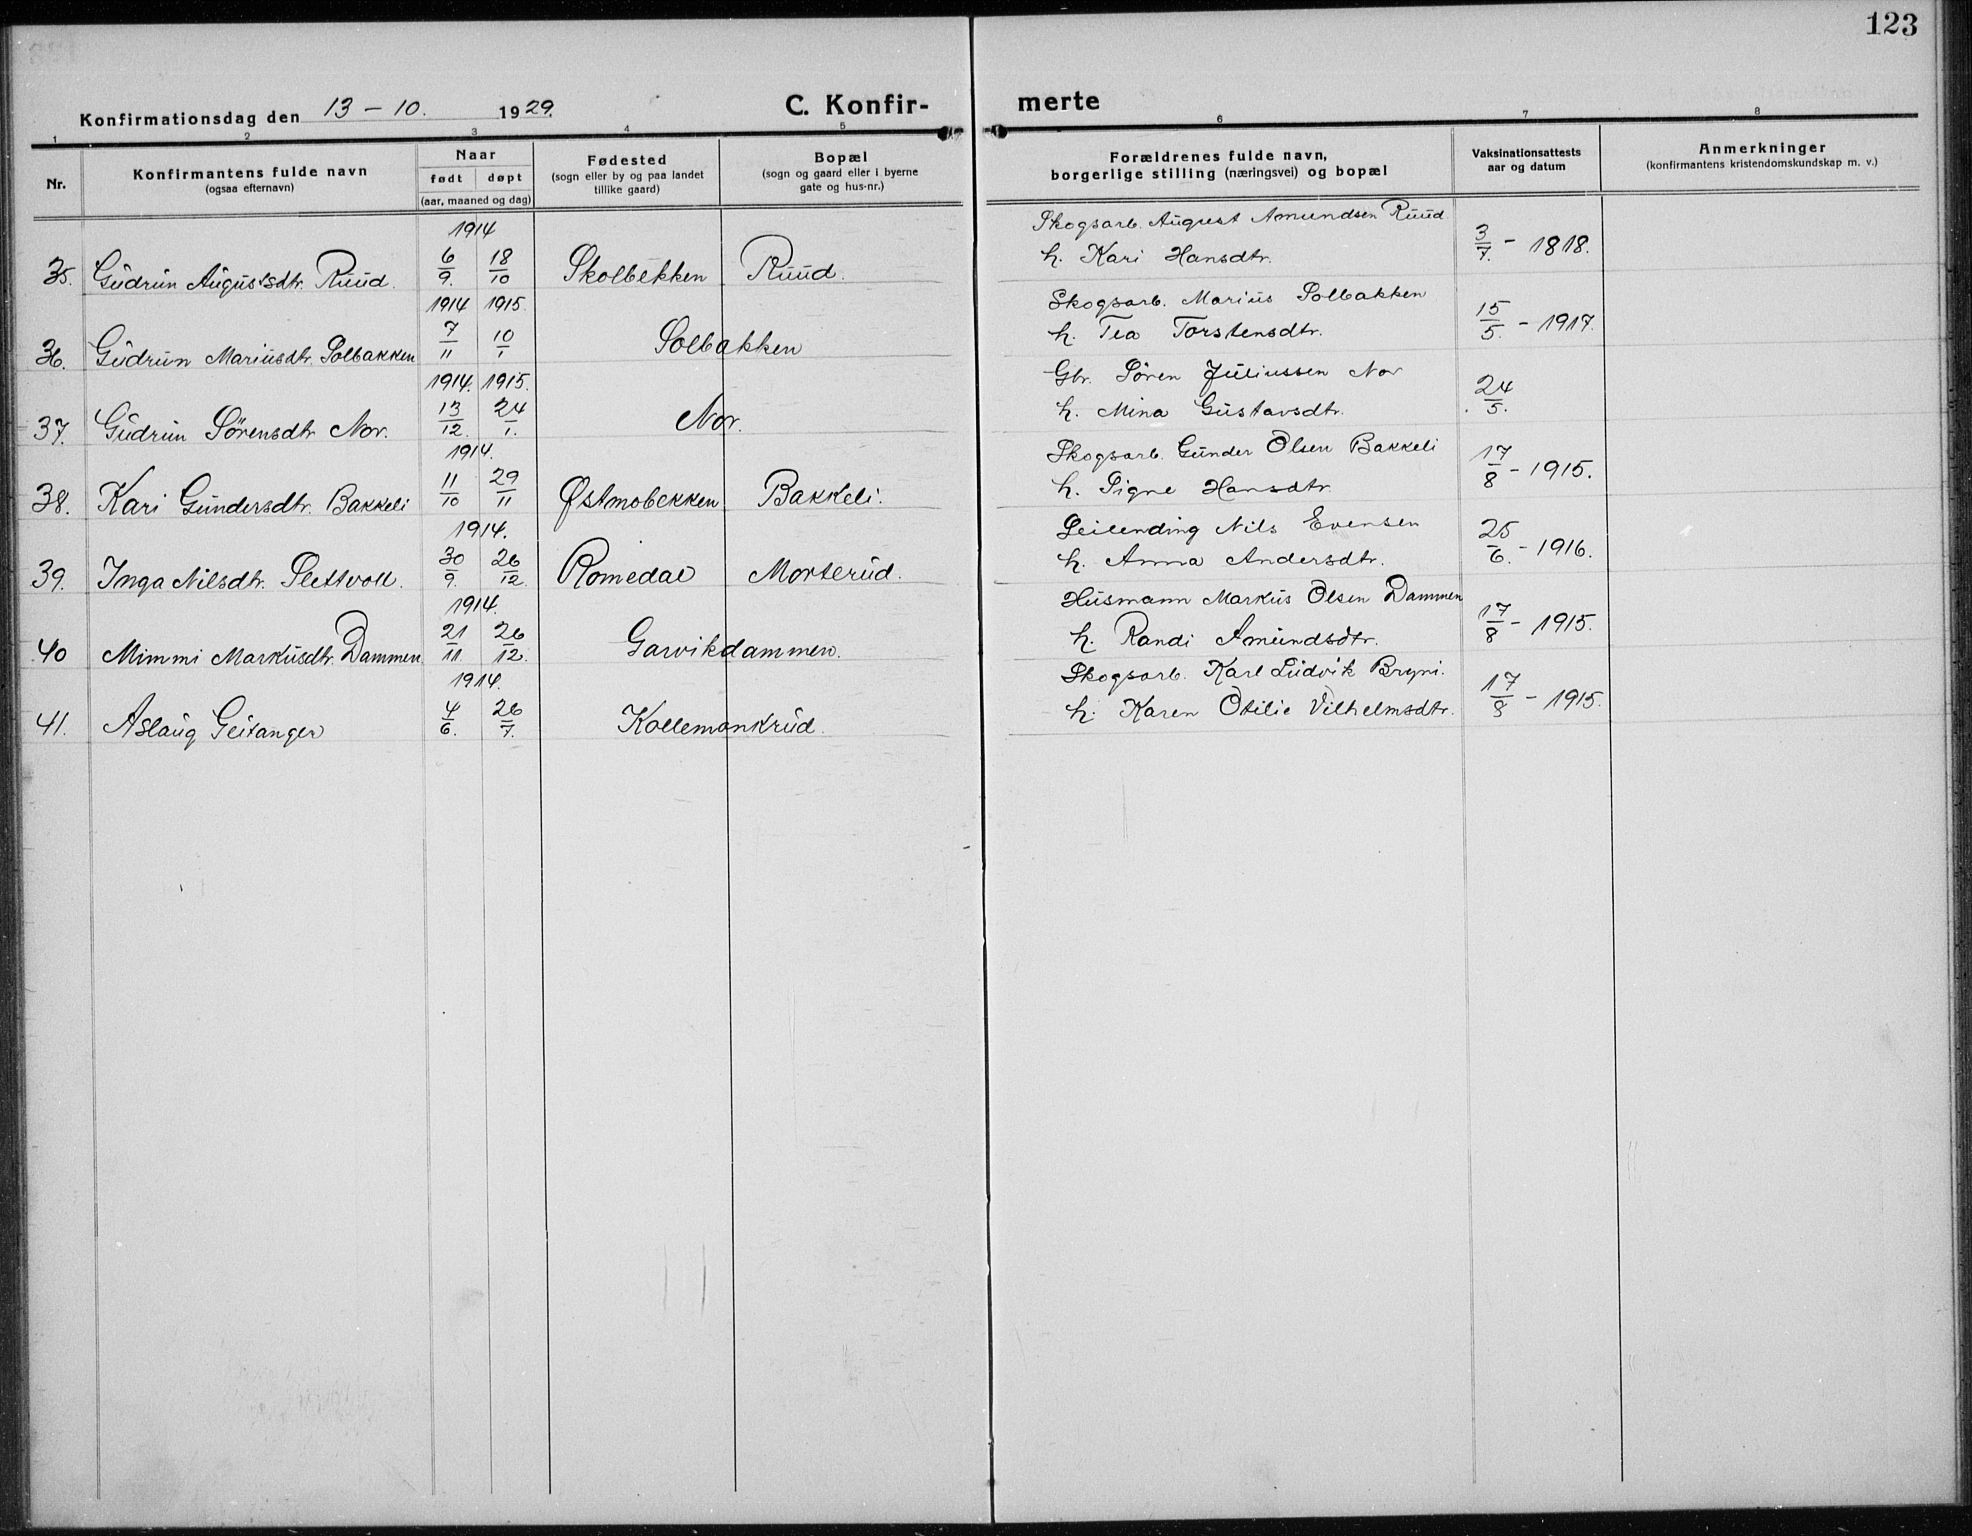 123
Konfirmationsdag den 13 – 10. 1929.
C. Konfir-
merte
1 2 3 4 5 6 7 8
Nr.
Konfirmantens fulde navn
(ogsaa efternavn)
Naar
født døpt
(aar, maaned og dag)
Fødested
(sogn eller by og paa landet
tillike gaard)
Bopæl
(sogn og gaard eller i byerne
gate og hus-nr.)
Forældrenes fulde navn,
borgerlige stilling (næringsvei) og bopæl
Vaksinationsattests
aar og datum
Anmerkninger
(konfirmantens kristendomskundskap m. v.)
1914
Skogsarb. August Amundsen Ruud
35. Gudrun Augustsdtr. Ruud. 6/9. 18/10 Skolbekken Ruud. h. Kari Hansdtr. 3/7. – 1818.
1914 1915.
Skogsarb. Marius Solbakken
36. Gudrun Mariusdtr. Solbakken 7/11 10/1 Solbakken h. Tea Torstensdtr. 15/5. – 1917.
1914. 1915.
Gbr. Sören Juliussen Nor
37. Gudrun Sörensdtr Nor. 13/12. 24/1. Nor. h. Mina Gustavsdtr. 24/5.
1914.
Skogsarb. Gunder Olsen Bakkeli
38. Kari Gundersdtr. Bakkeli 11/10 29/11 Østmobekken Bakkeli. h. Signe Hansdtr 17/8 – 1915.
1914.
Leilending Nils Evensen
39. Inga Nilsdtr. Slettvoll. 30/9. 26/12. Romedal Morterud. h. Anna Andersdtr. 25/6. – 1916.
1914.
Husmann Markus Olsen Dammen
40 Mimmi Markusdtr. Dammen. 21/11. 26/12. Garvikdammen. h. Randi Amundsdtr. 17/8 – 1915.
1914.
Skogsarb. Karl Ludvik Bryni.
41. Aslaug Geitanger 4/6. 26/7. Kollemankrud. h. Karen Otilie Vilhelmsdtr. 17/8 – 1915.